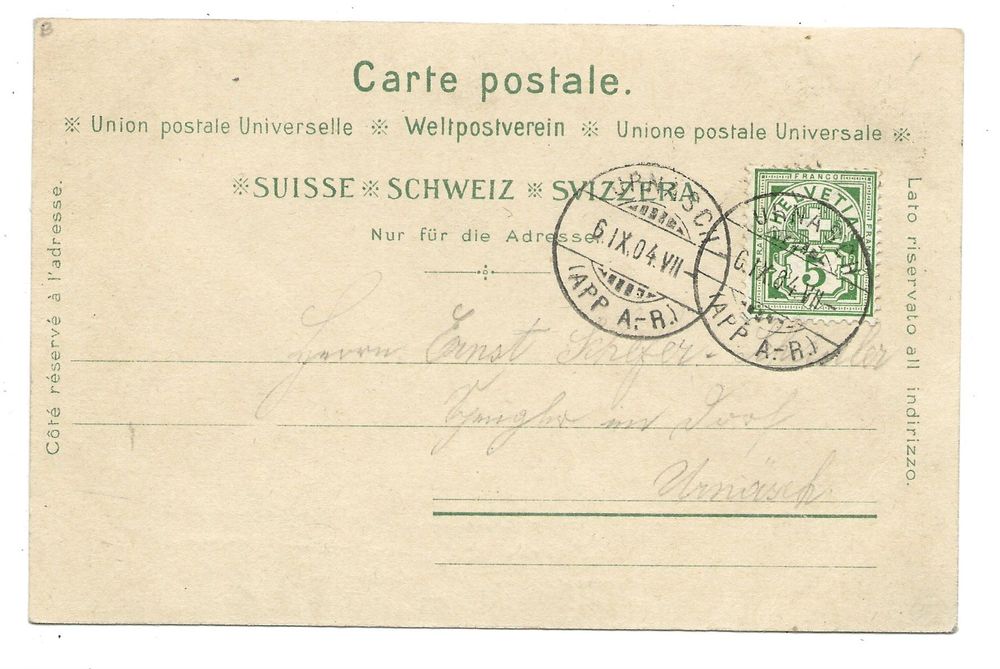 B
Carte postale.
※ Union postale Universelle ※ Weltpostverein ※ Unione postale Universale ※
※ SUISSE ※ SCHWEIZ ※ SVIZZERA
Nur für die Adresse.
Côté réservé à l'adresse.
Lato riservato all indirizzo.
FRANCO
HELVETIA
FRANCO
FRANCO
5
URNÄSCH
6.IX.04.VII
(APP. A.-R.)
URNÄSCH
6.IX.04.VII
(APP. A.-R.)
Herrn Ernst
im Dorf
Urnäsch.